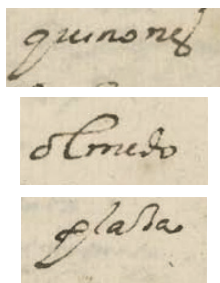 quinones
olmedo
plassa